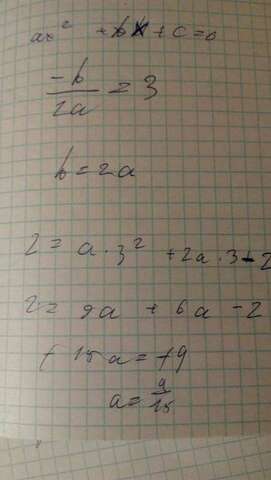 ax² + bx + c = 0
-b/2a = 3
b = 2a
2 = a · 3² + 2a · 3 - 2
2 = 9a + 6a - 2
15a =
a = 9/15